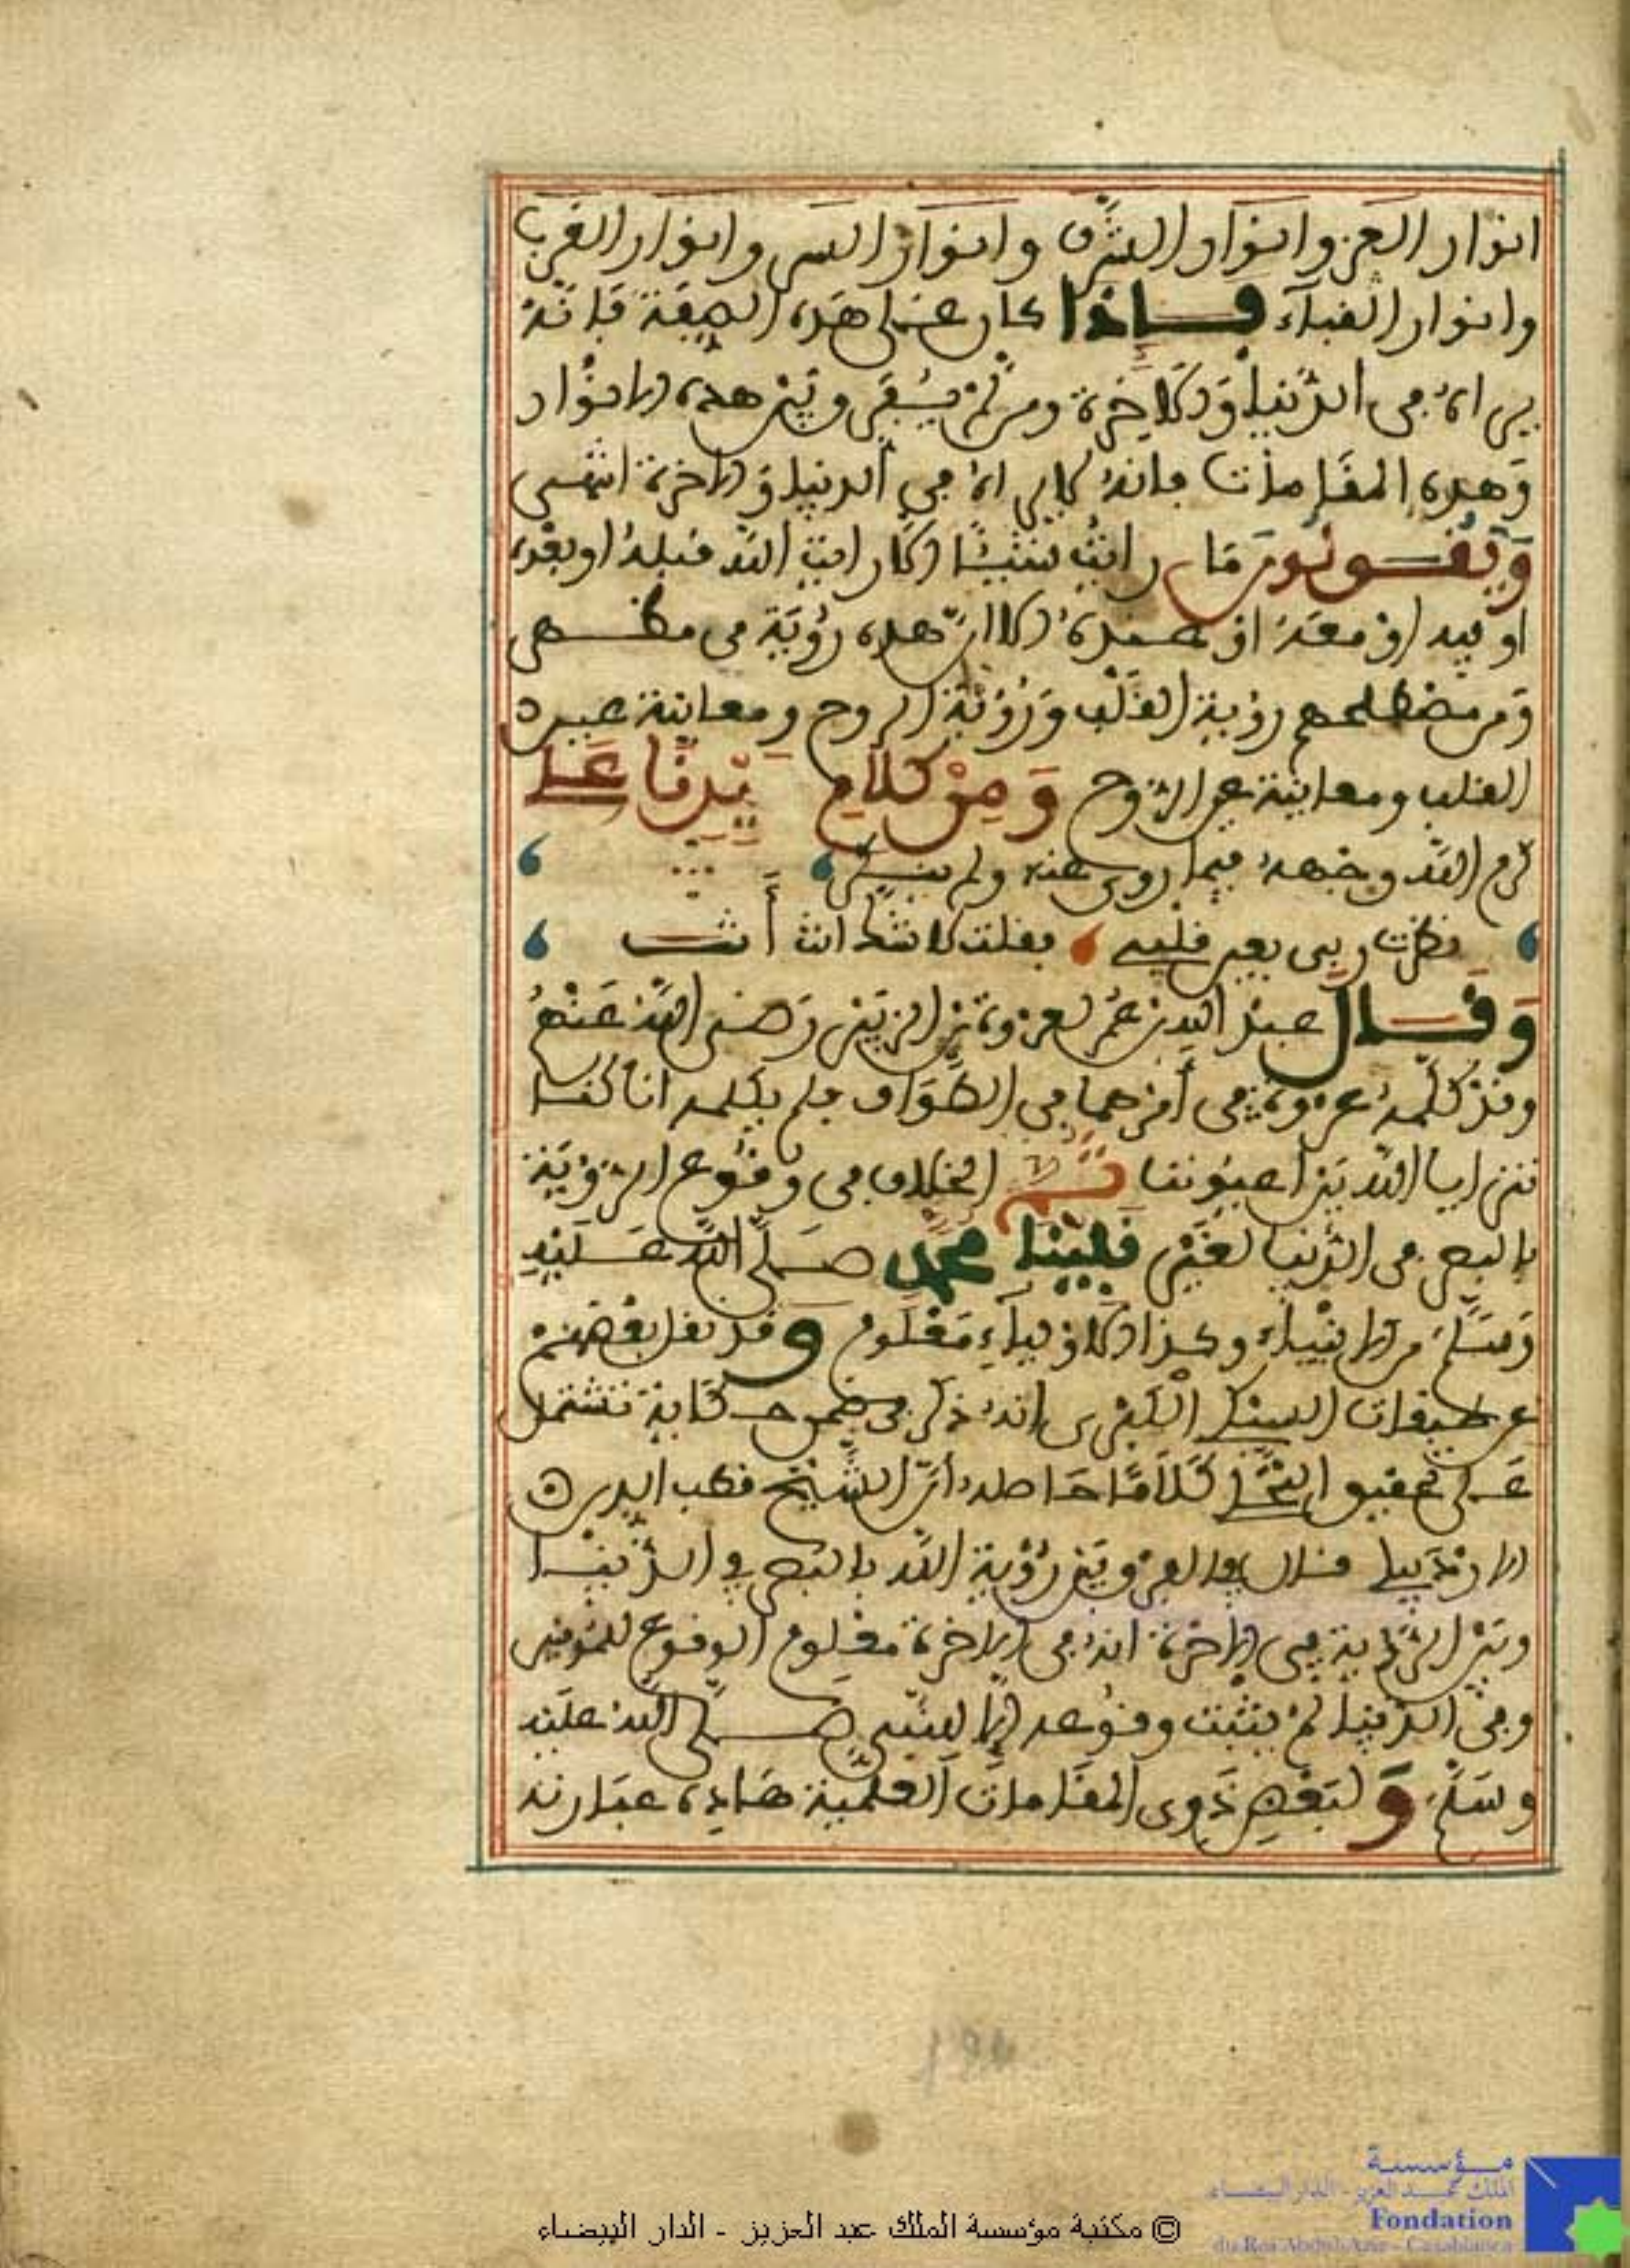 انوار العز وانوار الشرف وانوار السر وانوار القرب
وانوار الفناء فإذا كان على هذه الصفة فإنه
يراه في الدنيا والاخرة ومن لم يفرق بين هذه الانوار
وهذه المقامات فانه لا يراه في الدنيا والاخرة انتهى
ويقولون ما رايت شيئا الا رايت الله قبله او بعده
او فيه او معه او عنده الا ان هذه رؤية في
ومن مصطلحهم رؤية القلب ورؤية الروح ومعاينة عين
القلب ومعاينة عين الروح ومن كلام سيدنا علي
كرم الله وجهه فيما روي عنه ولم
نظرت ربي بعين قلبي فقلت لا شك انت أنت
وقال عبد الله بن عمر لعروة بن الزبير رضي الله عنهم
وقد كلمه عروة في أمر هما في الطواف فلم يكلمه انا كنا
نترايا الله بين اعيوننا ثم الخلاف في وقوع الرؤية
بالبصر في الدنيا لغير نبينا محمد صلى الله عليه
وسلم من الانبياء وكذا الاولياء معلوم وقد نقل بعضهم
عن طبقات السبكي الكبرى انه ذكر في كتابة تشتمل
على تحقيق كلاما حاصله أن الشيخ قطب الدين
الاردبيلي قال الفرق بين رؤية الله بالبصر في الدنيا
وبين الرؤية في الاخرة انه في الاخرة معلوم الوقوع للمومنين
وفي الدنيا لم يثبت وقوعه الا للنبي صلى الله عليه
وسلم ولبعض ذوي المقامات العلمية هاذه عبارته
© مكتبة مؤسسة الملك عبد العزيز - الدار البيضاء
مؤسسة
الملك عبد العزيز - الدار البيضاء
Fondation
du Roi Abdul-Aziz - Casablanca